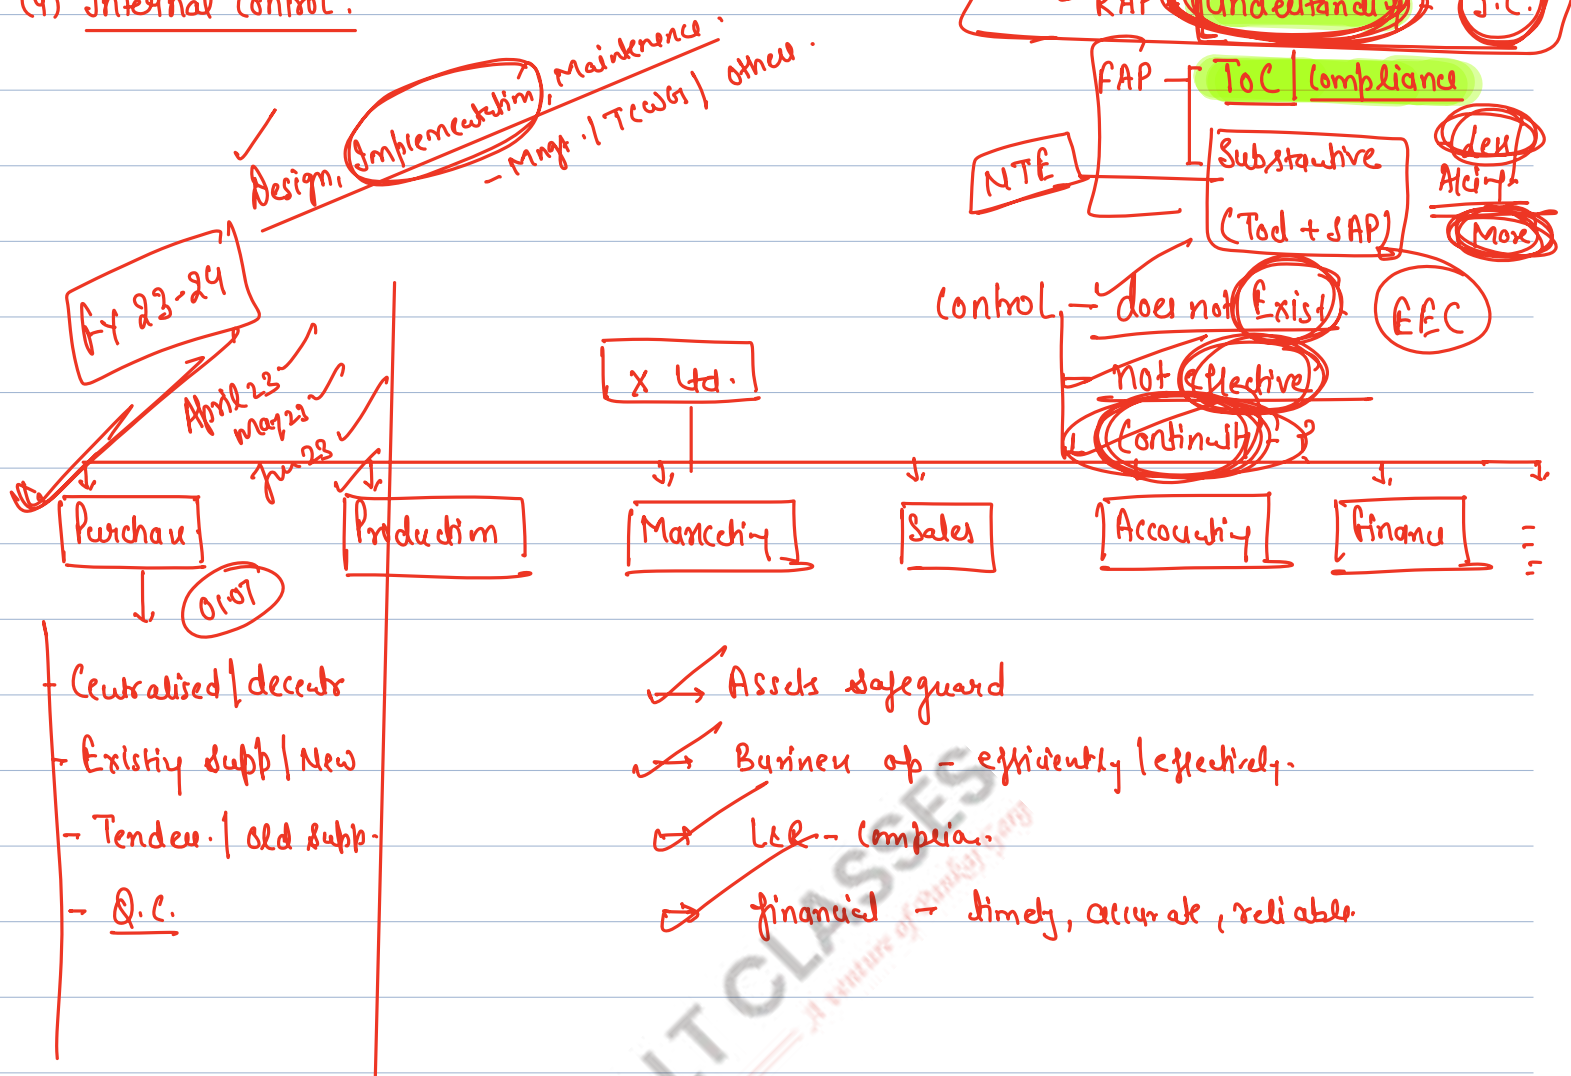 (4) Internal Control.
RAP Understanding I.C.
FAP ToC | Compliance
Design, Implementation, Maintenence.
- Mngt. | TCWG | others.
NTE
Substantive
(ToD + SAP)
less
More
FY 23-24
April 23
May 23
Jun 23
Control - does not Exist.
EEC
- not effective
Continuity - ?
X Ltd.
Purchase
Production
Marketing
Sales
Accounting
Finance
01.07
- Centralised | decentr
- Existing Supp | New
- Tender. | old supp.
- Q.C.
→ Assets safeguard
→ Business op - efficiently | effectively.
→ L&R - Complian.
→ financial - timely, accurate, reliable.
LT CLASSES
A venture of Pankaj Garg